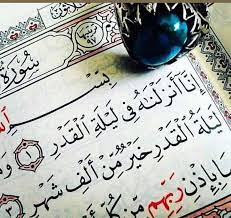 سُورَةُ
بِسْمِ
إِنَّا أَنزَلْنَاهُ فِي لَيْلَةِ الْقَدْرِ ١
لَيْلَةُ الْقَدْرِ خَيْرٌ مِّنْ أَلْفِ شَهْرٍ ٣
بِإِذْنِ رَبِّهِم مِّن